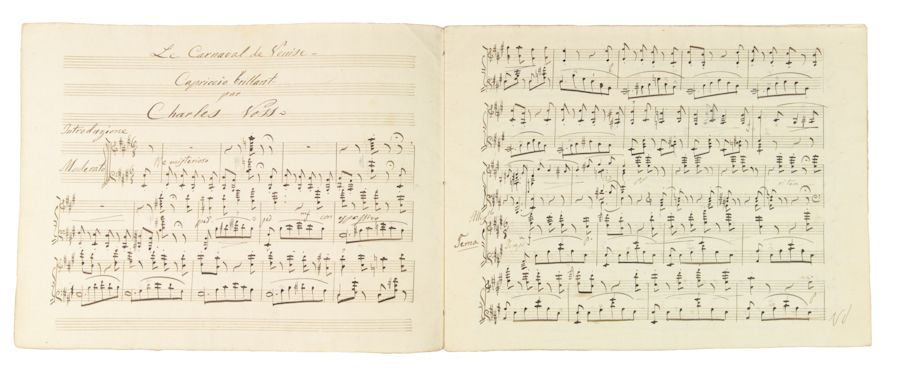 Le Carnaval de Venise
Capriccio brillant
par
Charles Voss
Introduzione
Moderato
misterioso
con
Tema